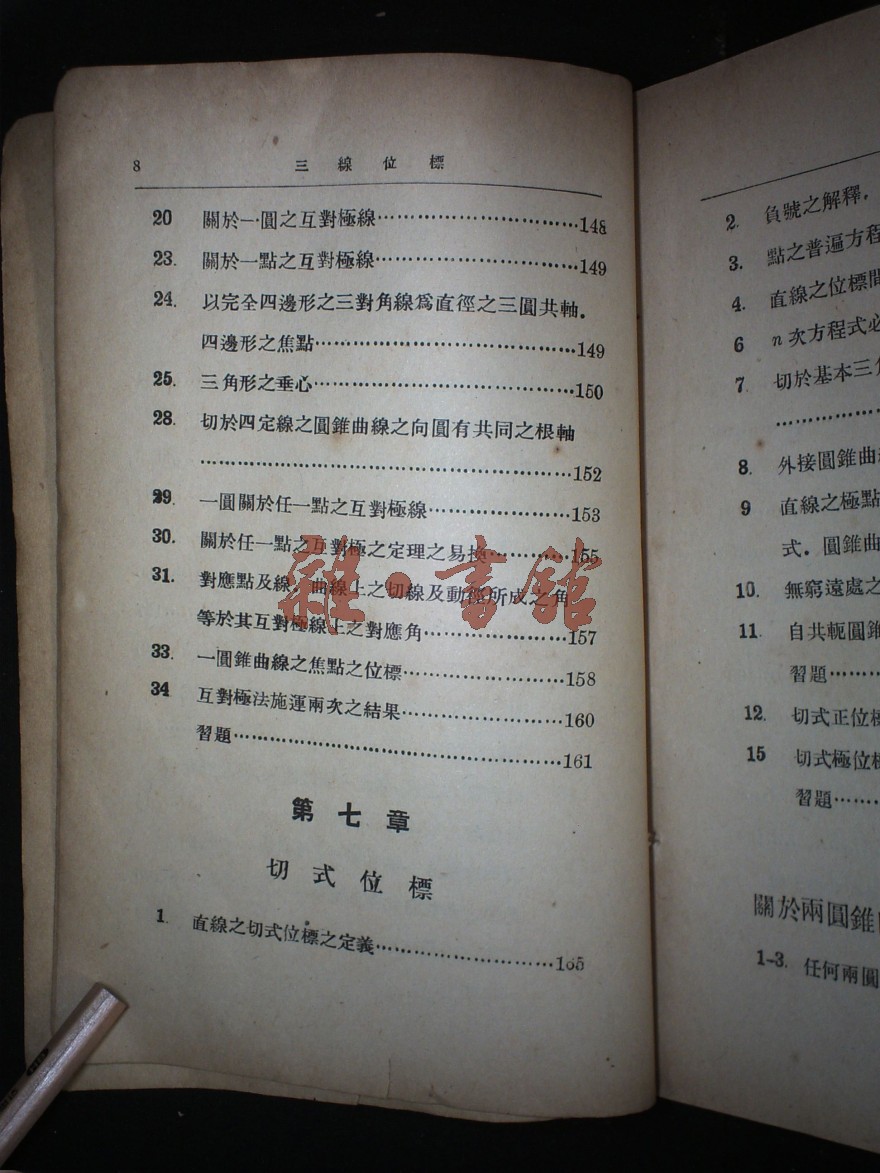 8 三線位標
20 關於一圓之互對極線……………………………148
23. 關於一點之互對極線……………………………149
24. 以完全四邊形之三對角線爲直徑之三圓共軸.
四邊形之焦點……………………………………149
25. 三角形之垂心……………………………………150
28. 切於四定線之圓錐曲線之向圓有共同之根軸
……………………………………………………152
29. 一圓關於任一點之互對極線……………………153
30. 關於任一點之互對極之定理之易換……………155
31. 對應點及線．曲線上之切線及動徑所成之角
等於其互對極線上之對應角……………………157
33. 一圓錐曲線之焦點之位標………………………158
34 互對極法施運兩次之結果………………………160
習題………………………………………………161
第七章
切式位標
1. 直線之切式位標之定義…………………………165
2. 負號之解釋，
3. 點之普遍方程
4. 直線之位標間
6 n次方程式必
7 切於基本三角
………………
8. 外接圓錐曲
9 直線之極點
式．圓錐曲
10. 無窮遠處之
11. 自共軛圓錐
習題………
12. 切式正位標
15 切式極位標
習題………
關於兩圓錐
1-3. 任何兩圓
雜·書館